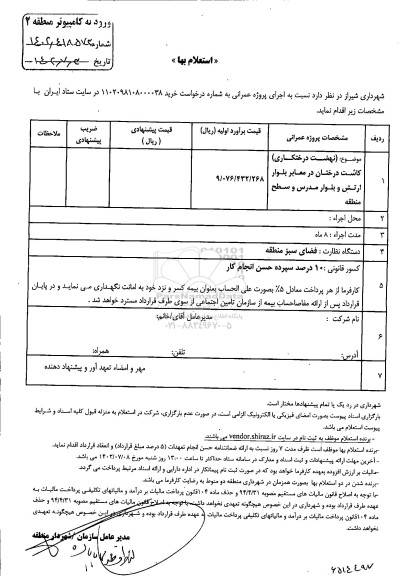 ورود به کامپیوتر منطقه ۲
شماره
تاریخ
« استعلام بها »
شهرداری شیراز در نظر دارد نسبت به اجرای پروژه عمرانی به شماره درخواست خرید ۱۱۰۲۰۹۸۱۰۸۰۰۰۰۳۸ در سایت ستاد ایران با
مشخصات زیر اقدام نماید.
ردیف مشخصات پروژه عمرانی قیمت برآورد اولیه (ریال) قیمت پیشنهادی (ریال) ضریب پیشنهادی ملاحظات
۱ موضوع: (نهضت درختکاری) کاشت درختان در معابر بلوار ارتش و بلوار مدرس و سطح منطقه ۹/۰۷۶/۴۳۲/۲۶۸
۲ محل اجراء :
۳ مدت اجراء : ۸ ماه
۴ دستگاه نظارت : فضای سبز منطقه
۵ کسور قانونی : ۱۰ درصد سپرده حسن انجام کار
کارفرما از هر پرداخت معادل ۵٪ بصورت علی الحساب بعنوان بیمه کسر و نزد خود به امانت نگهداری می نماید و در پایان
قرارداد پس از ارائه مفاصاحساب بیمه از سازمان تامین اجتماعی از سوی طرف قرارداد مسترد خواهد شد .
۶ نام شرکت : مدیرعامل آقای/خانم:
آدرس: تلفن: همراه:
۷ مهر و امضاء تعهد آور و پیشنهاد دهنده
شهرداری در رد یک یا تمام پیشنهادها مختار است.
بارگزاری اسناد پیوست بصورت امضای فیزیکی یا الکترونیک الزامی است، در صورت عدم بارگزاری، شرکت در استعلام به منزله قبول کلیه اسناد و شرایط
پیوست استعلام می باشد.
- برنده استعلام موظف به ثبت نام در سایت vendor.shiraz.ir می باشند.
- برنده استعلام بها موظف است ظرف مدت ۷ روز نسبت به ارائه ضمانتنامه حسن انجام تعهدات (۵ درصد مبلغ قرارداد) و انعقاد قرارداد اقدام نماید.
- آخرین مهلت ارائه پیشنهادات و ثبت اسناد و مدارک در سامانه ستاد حداکثر تا ساعت ۱۳:۰۰ روز شنبه مورخ ۱۴۰۲/۰۷/۰۸ می باشد.
- مالیات بر ارزش افزوده بعهده کارفرما خواهد بود که در صورت ثبت نام پیمانکار در اداره دارایی و ارائه اسناد مرتبط پرداخت می گردد.
- برنده شدن در دو استعلام بها بصورت همزمان در شهرداری منطقه دو منوط به رضایت کارفرما می باشد.
-با توجه به اصلاح قانون مالیات های مستقیم مصوبه ۹۴/۴/۳۱ و حذف ماده ۱۰۴ قانون پرداخت مالیات بر درآمد و مالیاتهای تکلیفی پرداخت مالیات به
عهده طرف قرارداد بوده و شهرداری در این خصوص هیچگونه تعهدی نخواهد داشت. با توجه به اصلاح قانون مالیات های مستقیم مصوبه ۹۴/۴/۳۱ و حذف
ماده ۱۰۴ قانون پرداخت مالیات بر درآمد و مالیاتهای تکلیفی پرداخت مالیات به عهده طرف قرارداد بوده و شهرداری در این خصوص هیچگونه تعهدی
نخواهد داشت.
مدیر عامل سازمان / شهردار منطقه